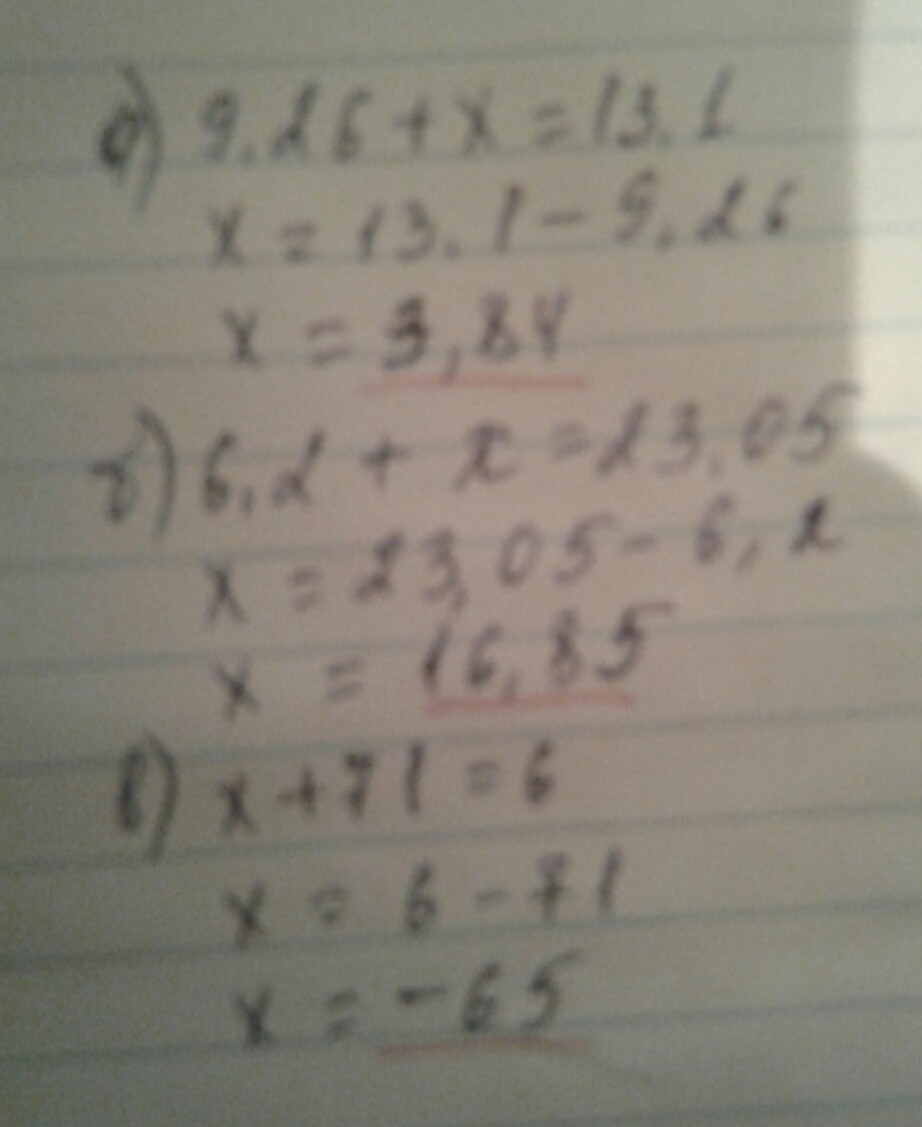 а) 9.26+x=13.1
x=13.1-9.26
x=3,84
б) 6.2+x=23.05
x=23,05-6,2
x=16,85
в) x+71=6
x=6-71
x=-65